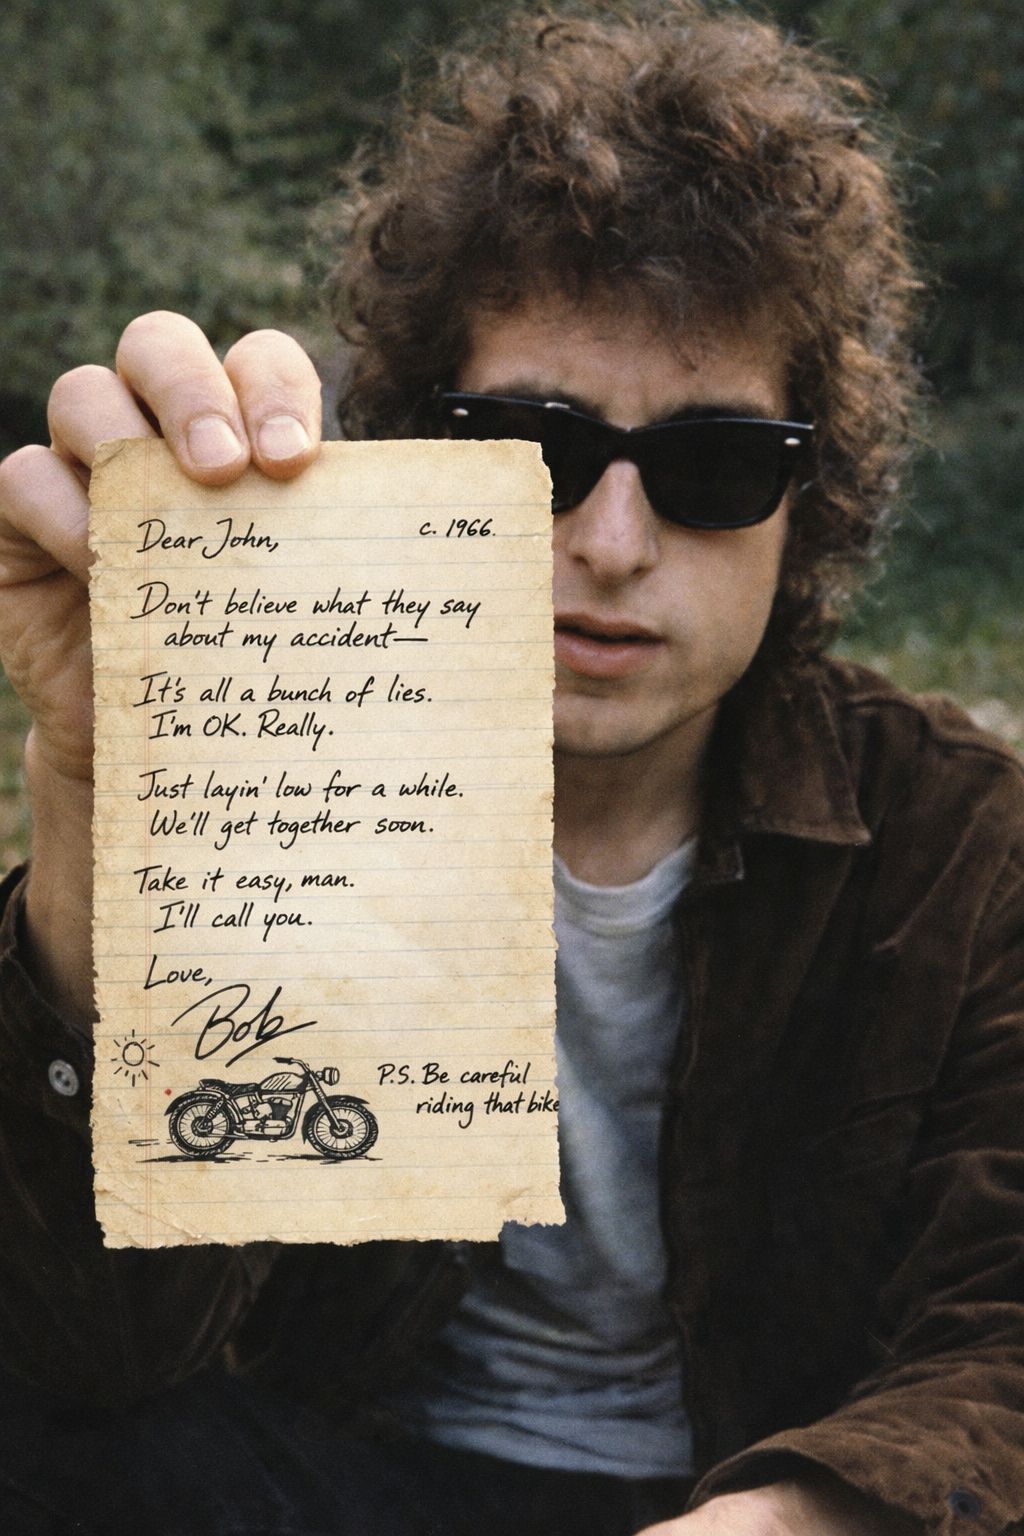 Dear John,
c. 1966.
Don't believe what they say
about my accident—
It's all a bunch of lies.
I'm OK. Really.
Just layin' low for a while.
We'll get together soon.
Take it easy, man.
I'll call you.
Love,
Bob
P.S. Be careful
riding that bike